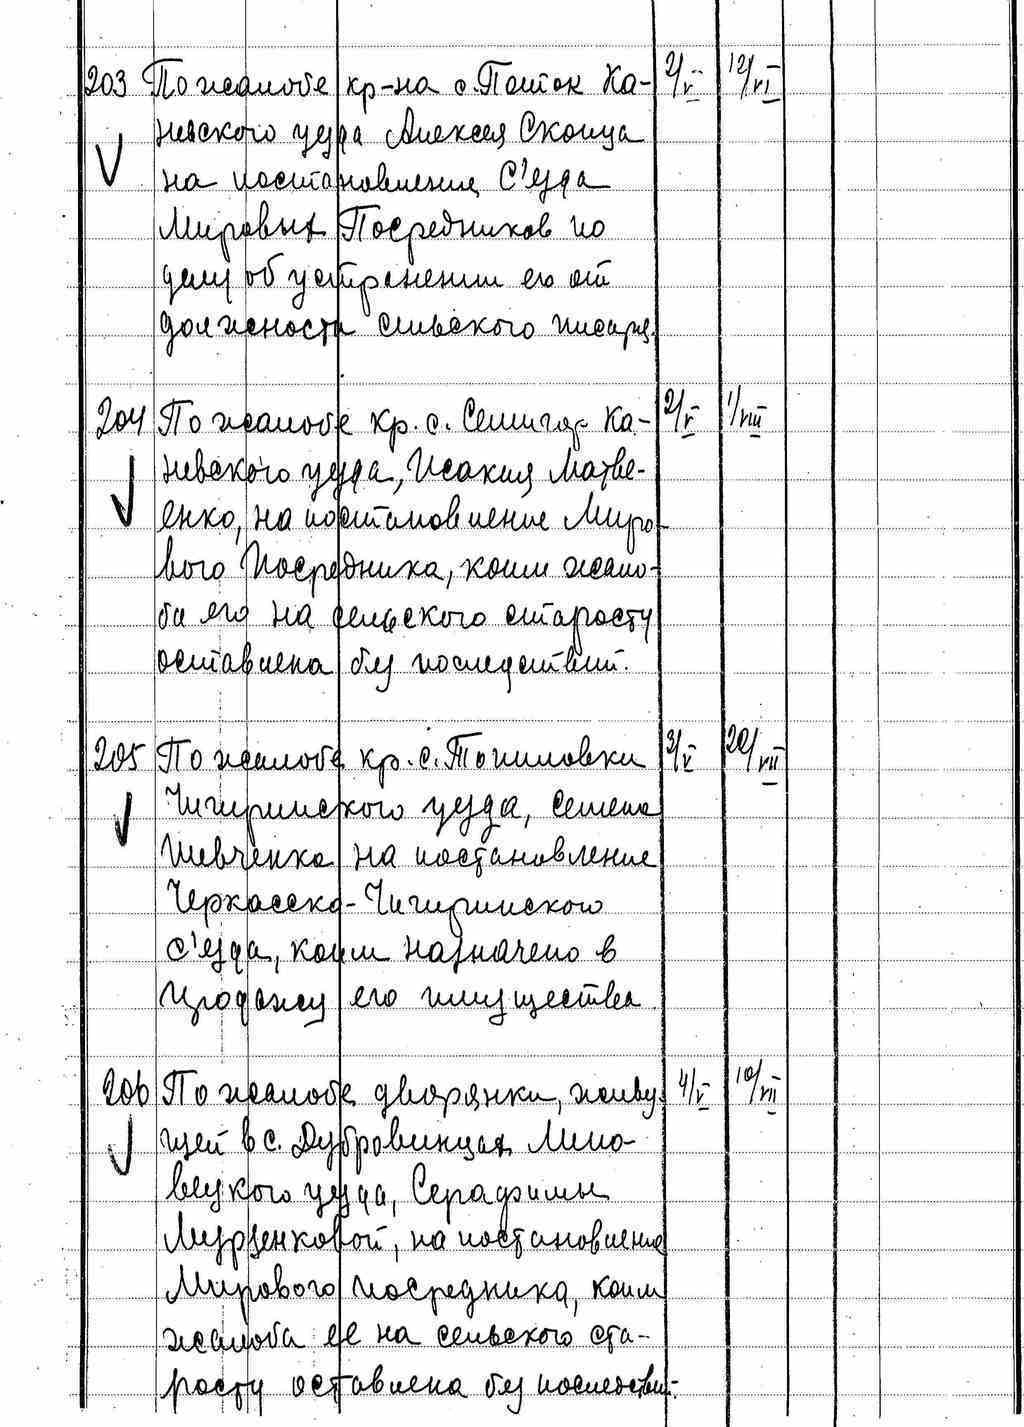 203 По жалобе кр-на с. Поток Ка- 2/V 12/VI
невского уезда Алексея Скопца
на постановление С'езда
Мировых Посредников по
делу об устранении его от
должности сельского писаря.
204 По жалобе кр. с. Семигор Ка- 2/V 1/VIII
невского уезда, Исакия Матве-
енко, на постановление Миро-
вого Посредника, коим жало-
ба его на сельского старосту
оставлена без последствий.
205 По жалобе кр. с. Топиловки 3/V 20/VII
Чигиринского уезда, Семена
Шевченко на постановление
Черкасско-Чигиринского
с'езда, коим назначено в
продажу его имущество
206 По жалобе дворянки, живу- 4/V 10/VII
щей в с. Дубровинцах Липо-
вецкого уезда, Серафимы
Мурзенковой, на постановление
Мирового посредника, коим
жалоба ее на сельского ста-
росту оставлена без последствий.